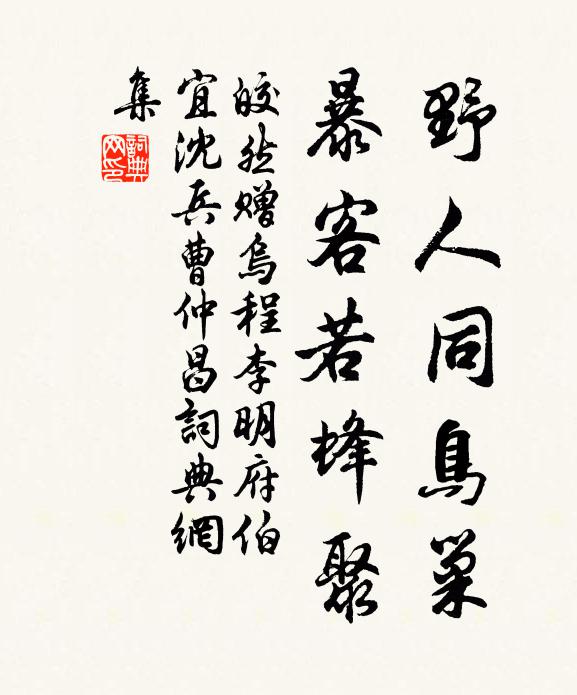 野人同鳥巢
暴客若蜂聚
皎然赠烏程李明府伯
宜沈兵曹仲昌詞典網
集
詞典
网印